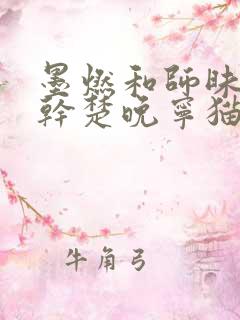 墨燃和師昧
幹楚晚寧猫
牛角弓